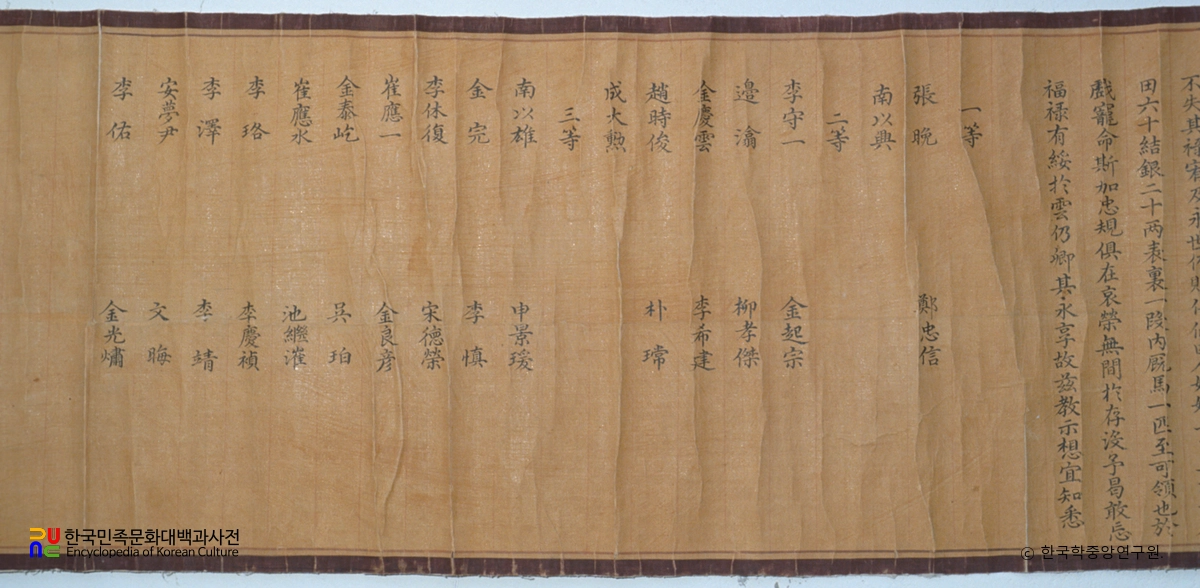 田六十結銀二十兩表裏一段內廐馬一匹至可領也於
戲寵命斯加忠規俱在哀榮無間於存沒予曷敢忘
福祿有綏於雲仍卿其永享故玆敎示想宜知悉
一等
張晩 鄭忠信
南以興
二等
李守一 金起宗
邊潝 柳孝傑
金慶雲 李希建
趙時俊 朴瑺
成大勲
三等
南以雄 申景瑗
金完 李愼
李休復 宋德榮
崔應一 金良彦
金泰屹 吳珀
崔應水 池繼漼
李珞 李慶禎
李澤 李靖
安夢尹 文晦
李佑 金光熽
한국민족문화대백과사전
Encyclopedia of Korean Culture
© 한국학중앙연구원